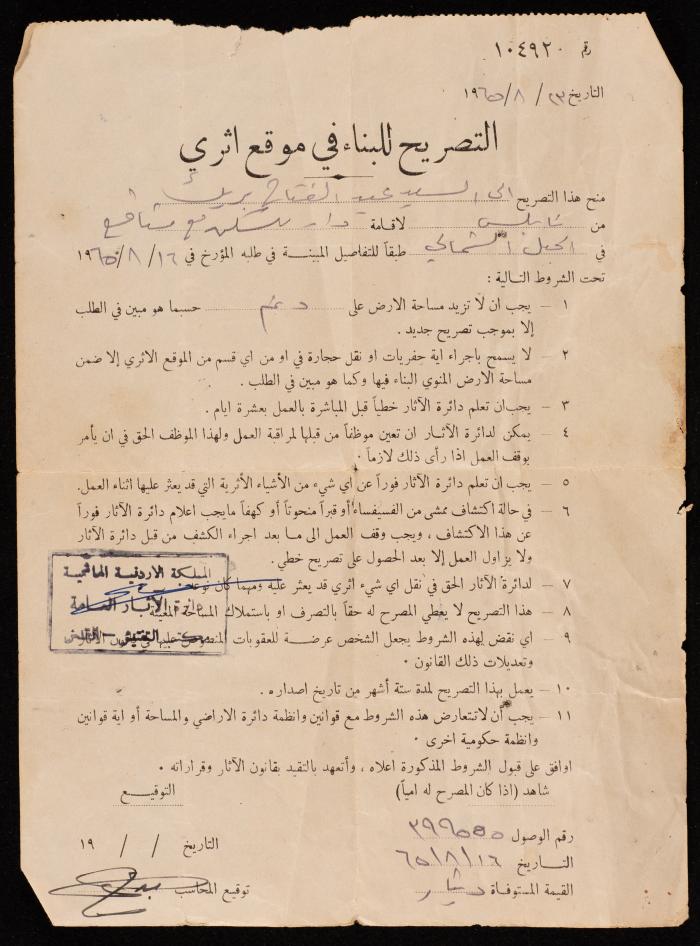 رقم ١٠٤٩٢٠
التاريخ ٢٣ / ٨ / ١٩٦٥
التصريح للبناء في موقع اثري
منح هذا التصريح الى السيد عبد الفتاح بريك
من نابلس لاقامة دار للسكن مع منافع
في الجبل الشمالي طبقاً للتفاصيل المبينة في طلبه المؤرخ في ١٦ / ٨ / ١٩٦٥
تحت الشروط التالية :
١ – يجب ان لا تزيد مساحة الارض على حسبما هو مبين في الطلب
إلا بموجب تصريح جديد .
٢ – لا يسمح باجراء اية حفريات او نقل حجارة في او من اي قسم من الموقع الاثري إلا ضمن
مساحة الارض المنوي البناء فيها وكما هو مبين في الطلب .
٣ – يجب ان تعلم دائرة الآثار خطياً قبل المباشرة بالعمل بعشرة ايام .
٤ – يمكن لدائرة الآثار ان تعين موظفاً من قبلها لمراقبة العمل ولهذا الموظف الحق في ان يأمر
بوقف العمل اذا رأى ذلك لازماً .
٥ – يجب ان تعلم دائرة الآثار فوراً عن اي شيء من الأشياء الأثرية التي قد يعثر عليها اثناء العمل .
٦ – في حالة اكتشاف ممشى من الفسيفساء أو قبراً منحوتاً أو كهفاً ما يجب اعلام دائرة الآثار فوراً
عن هذا الاكتشاف ، ويجب وقف العمل الى ما بعد اجراء الكشف من قبل دائرة الآثار
ولا يزاول العمل إلا بعد الحصول على تصريح خطي .
المملكة الاردنية الهاشمية
دائرة الآثار العامة
مكتب التفتيش – القدس
٧ – لدائرة الآثار الحق في نقل اي شيء اثري قد يعثر عليه ومهما كان نوعه
٨ – هذا التصريح لا يعطي المصرح له حقاً بالتصرف او باستملاك المساحة المعينة
٩ – اي نقض لهذه الشروط يجعل الشخص عرضة للعقوبات المنصوص عليها في قانون الآثار
وتعديلات ذلك القانون .
١٠ – يعمل بهذا التصريح لمدة ستة أشهر من تاريخ اصداره .
١١ – يجب أن لا تتعارض هذه الشروط مع قوانين وانظمة دائرة الاراضي والمساحة أو اية قوانين
وانظمة حكومية اخرى .
اوافق على قبول الشروط المذكورة اعلاه ، وأتعهد بالتقيد بقانون الآثار وقراراته .
شاهد (اذا كان المصرح له امياً) التوقيع
رقم الوصول ٣٩٩٥٥٥ التاريخ / / ١٩
التاريخ ١٦ / ٨ / ٦٥
القيمة المستوفاة دينار توقيع المحاسب